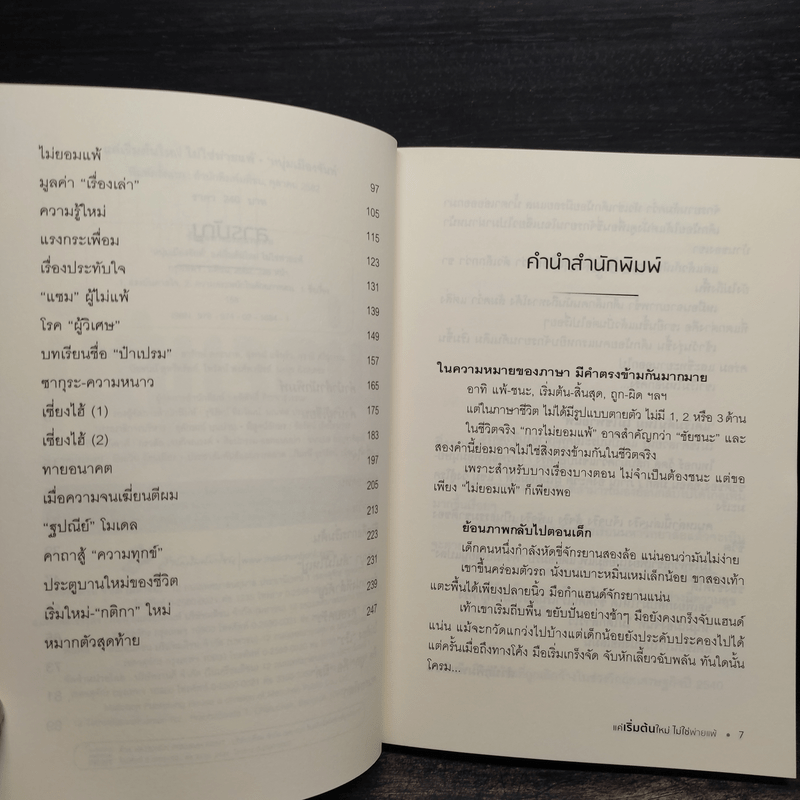 ไม่ยอมแพ้
มูลค่า "เรื่องเล่า" 97
ความรู้ใหม่ 105
แรงกระเพื่อม 115
เรื่องประทับใจ 123
"แซม" ผู้ไม่แพ้ 131
โรค "ผู้วิเศษ" 139
บทเรียนชื่อ "ป๋าเปรม" 149
ซากุระ-ความหนาว 157
เซี่ยงไฮ้ (1) 165
เซี่ยงไฮ้ (2) 175
ทายอนาคต 183
เมื่อความจนเฆี่ยนตีผม 197
"ฐปณีย์" โมเดล 205
คาถาสู้ "ความทุกข์" 213
ประตูบานใหม่ของชีวิต 223
เริ่มใหม่-"กติกา" ใหม่ 231
หมากตัวสุดท้าย 239
247
คำนำสำนักพิมพ์
ในความหมายของภาษา มีคำตรงข้ามกันมากมาย
อาทิ แพ้-ชนะ, เริ่มต้น-สิ้นสุด, ถูก-ผิด ฯลฯ
แต่ในภาษาชีวิต ไม่ได้มีรูปแบบตายตัว ไม่มี 1, 2 หรือ 3 ด้าน
ในชีวิตจริง "การไม่ยอมแพ้" อาจสำคัญกว่า "ชัยชนะ" และ
สองคำนี้ย่อมอาจไม่ใช่สิ่งตรงข้ามกันในชีวิตจริง
เพราะสำหรับบางเรื่องบางตอน ไม่จำเป็นต้องชนะ แต่ขอ
เพียง "ไม่ยอมแพ้" ก็เพียงพอ
ย้อนภาพกลับไปตอนเด็ก
เด็กคนหนึ่งกำลังหัดขี่จักรยานสองล้อ แน่นอนว่ามันไม่ง่าย
เขาขึ้นคร่อมตัวรถ นั่งบนเบาะหมิ่นเหม่เล็กน้อย ขาสองเท้า
แตะพื้นได้เพียงปลายนิ้ว มือกำแฮนด์จักรยานแน่น
เท้าเขาเริ่มถีบพื้น ขยับปั่นอย่างช้าๆ มือยังคงเกร็งจับแฮนด์
แน่น แม้จะกวัดแกว่งไปบ้างแต่เด็กน้อยยังประคับประคองไปได้
แต่ครั้นเมื่อถึงทางโค้ง มือเริ่มเกร็งจัด จับหักเลี้ยวฉับพลัน ทันใดนั้น
โครม...
แค่เริ่มต้นใหม่ ไม่ใช่พ่ายแพ้ • 7